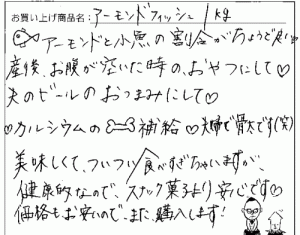 お買い上げ商品名：アーモンドフィッシュ 1kg
アーモンドと小魚の割合がちょうど良い
産後、お腹が空いた時の、おやつにして♡
夫のビールのおつまみにして♡
♡カルシウムの補給♡夫婦で骨太です(笑)
美味しくて、ついつい食べすぎちゃいますが、
健康的なので、スナック菓子より安心です♡
価格もお安いので、また、購入します!